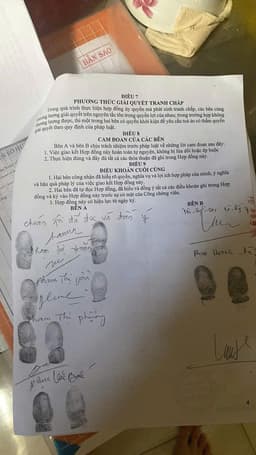 BẢN SAO
ĐIỀU 7
PHƯƠNG THỨC GIẢI QUYẾT TRANH CHẤP
Trong quá trình thực hiện hợp đồng ủy quyền mà phát sinh tranh chấp, các bên cùng
nhau thương lượng giải quyết trên nguyên tắc tôn trọng quyền lợi của nhau; trong trường hợp không
thương lượng được, thì một trong hai bên có quyền khởi kiện để yêu cầu toà án có thẩm quyền
giải quyết theo quy định của pháp luật.
ĐIỀU 8
CAM ĐOAN CỦA CÁC BÊN
Bên A và bên B chịu trách nhiệm trước pháp luật về những lời cam đoan sau đây:
1. Việc giao kết Hợp đồng này hoàn toàn tự nguyện, không bị lừa dối hoặc ép buộc
2. Thực hiện đúng và đầy đủ tất cả các thỏa thuận đã ghi trong Hợp đồng này.
ĐIỀU 9
ĐIỀU KHOẢN CUỐI CÙNG
1. Hai bên công nhận đã hiểu rõ quyền, nghĩa vụ và lợi ích hợp pháp của mình, ý nghĩa
và hậu quả pháp lý của việc giao kết Hợp đồng này.
2. Hai bên đã tự đọc Hợp đồng, đã hiểu và đồng ý tất cả các điều khoản ghi trong Hợp
đồng và ký vào Hợp đồng này trước sự có mặt của Công chứng viên.
3. Hợp đồng này có hiệu lực từ ngày ký.
BÊN A
BÊN B
chúng tôi đã đọc và đồng ý
Phạm Thị
Phạm Thị phượng
4